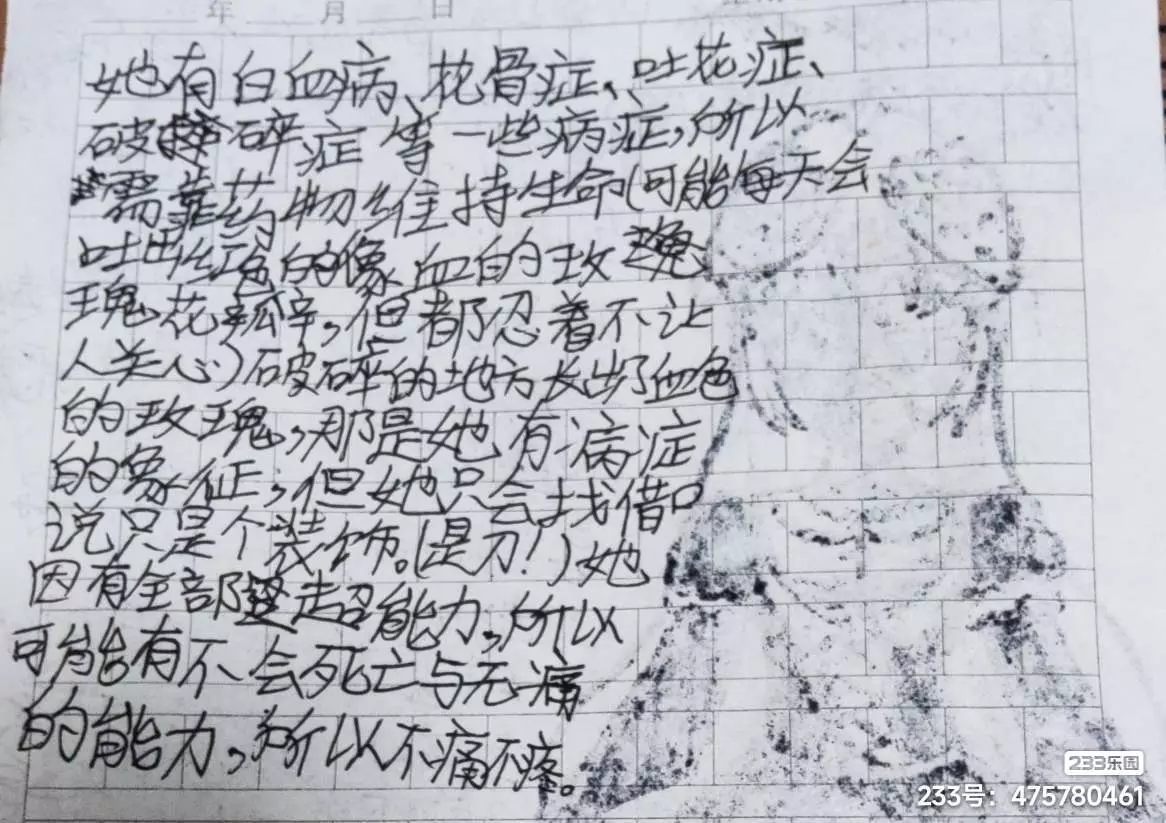 年 月 日
她有白血病、花骨症、吐花症、
破碎症等一些病症,所以
需靠药物维持生命(可能每天会
吐出红色的像血的玫瑰
瑰花瓣,但都忍着不让
人关心)破碎的地方长出了血色
的玫瑰,那是她有病症
的象征,但她只会找借口
说只是个装饰。(是刀!)她
因有全部超能力,所以
可能有不会死亡与无痛
的能力,所以不痛不疼。
233乐园
233号:475780461